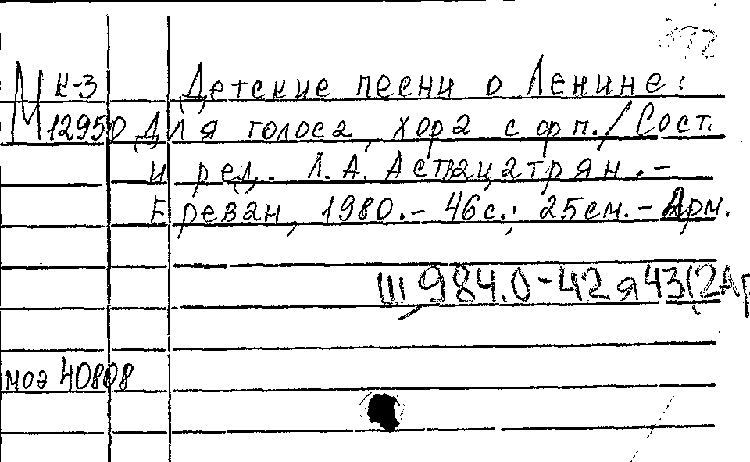 392
М К-3 Детские песни о Ленине:
12950 Для голоса, хора с ф п. / Сост.
и ред. Л. А. Аствацатрян. -
Ереван, 1980. - 46 с.; 25 см. - Арм.
Щ 984.0-42 я 43(2Ар
моэ 40808